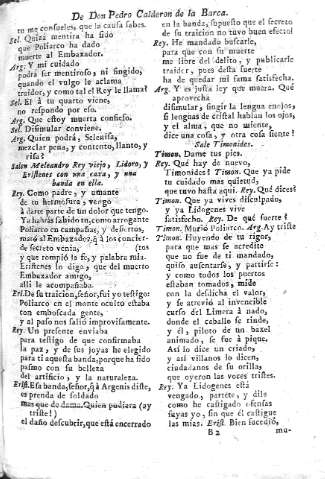 De Don Pedro Calderon de la Barca.
tu me consueles, que la causa sabes.
Sel. Quizá mentira ha sido
que Poliarco ha dado
muerte al Embaxador.
Arg. Y mi cuidado
podrá ser mentiroso, ni fingido,
quando el vulgo le aclama
traidor, y como tal el Rey le llama?
Sel. El á tu quarto viene,
no respondo por eso.
Arg. Que estoy muerta confieso.
Sel. Disimular conviene.
Arg. Quien podrá, Selenisa,
mezclar pena, y contento, llanto, y
risa?
Salen Meleandro Rey viejo, Lidoro, y
Eristenes con una caxa, y una
banda en ella.
Rey. Como padre, y amante
de tu hermosura, vengo
á darte parte de un dolor que tengo.
Ya habrás sabido tú, como arrogante
Poliarco en campañas, y desiertos,
mató al Embaxador, q á los concier-
tos
de secreto venia,
y que rompió la fe, y palabra mia.
Eristenes lo diga, que del muerto
Embaxador amigo,
alli le acompañaba.
Eri. De su traicion, señor, fui yo testigo:
Poliarco en el monte oculto estaba
con emboscada gente,
y al paso nos salió improvisamente.
Rey. Un presente enviaba
para testigo de que confirmaba
la paz, y de sus joyas he elegido
para tí aquesta banda, porque ha sido
pasmo con su belleza
del artificio, y la naturaleza.
Erist. Esa banda, señor, q á Argenis diste,
es prenda de soldado
mas que de dama. Quien pudiera (ay
triste!)
el daño descubrir, que está encerrado
en la banda, supuesto que el secreto
de su traicion no tuvo buen efeto!
Rey. He mandado buscarle,
para que con su muerte
me libre del delito, y publicarle
traidor, pues desta suerte
ha de quedar mi fama satisfecha.
Arg. Y es justa ley que muera. Qué
aprovecha
disimular, fingir la lengua enojos,
si lenguas de cristal hablan los ojos,
y el alma, que no miente,
dice una cosa, y otra cosa siente!
Sale Timonides.
Timon. Dame tus pies.
Rey. Qué hay de nuevo,
Timonides? Timon. Que ya pide
tu cuidado mas quietud,
que tuvo hasta aqui. Rey. Qué dices?
Timon. Que ya vives disculpado,
y ya Lidogenes vive
satisfecho. Rey. De qué suerte?
Timon. Murió Poliarco. Arg. Ay triste!
Timon. Huyendo de tu rigor,
para que mas se acredite
que no fue de ti mandado,
quiso ausentarse, y partirse:
y como todos los puertos
estaban tomados, mide
con la desdicha el valor,
y se atrevió al invencible
curso del Limera á nado,
donde el caballo se rinde,
y él, piloto de un baxel
animado, se fue á pique.
Asi lo dice un criado,
y asi villanos lo dicen,
ciudadanos de su orilla,
que oyeron las voces tristes.
Rey. Ya Lidogenes está
vengado, partete, y dile
como he castigado ofensas
suyas yo, sin que él castigue
las mias. Erist. Bien sucedió,
B2
mu-